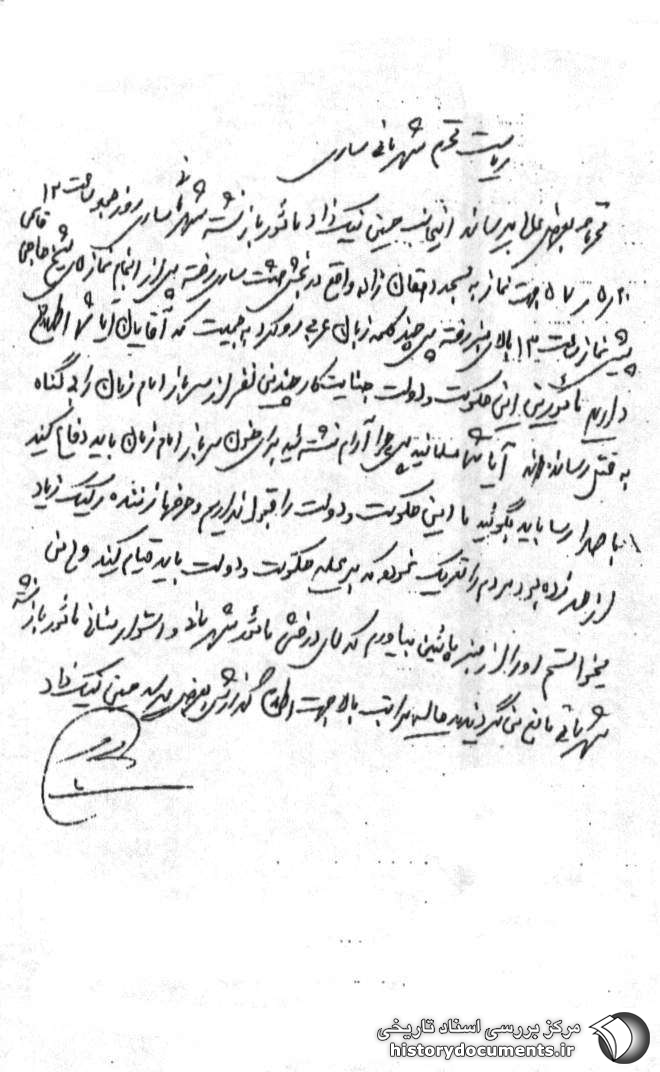 ریاست محترم شهربانی ساری
محترما بعرض عالی میرساند اینجانب حسینی نیک نژاد مأمور بازنشسته شهربانی ساری روز جمعه ساعت ۱۲
جهت نماز به مسجد دهقان زاده واقع در بخش هشت ساری رفته پس از انجام نماز شیخ حاجی قائمی
پیش نماز ساعت ۱۳ بالای منبر رفته پس چند کلمه زبان عربی رو کرد به جمعیت که آقایان آیا شما اطلاع
دارید مأمورین این حکومت و دولت جنایت کار چندین نفر از سرباز امام زمان را بی گناه
به قتل رسانده اند آیا شما مسلمانید پس چرا آرام نشسته اید برای خون سرباز امام زمان باید دفاع کنید
با صدا رسا باید بگوئید ما این حکومت و دولت را قبول نداریم و حرفها زننده رکیک زیاد
از حد زده بود مردم را تحریک نموده که بر علیه حکومت و دولت باید قیام کنید و من
میخواستم او را از منبر پائین بیاورم که درخشی مأمور شهربانی و استوار مأمور بازنشسته
شهربانی مانع من گردیدند مراتب بالا جهت اطلاع گزارش بعرض میرسد حسینی نیک نژاد
مرکز بررسی اسناد تاریخی
historydocuments.ir